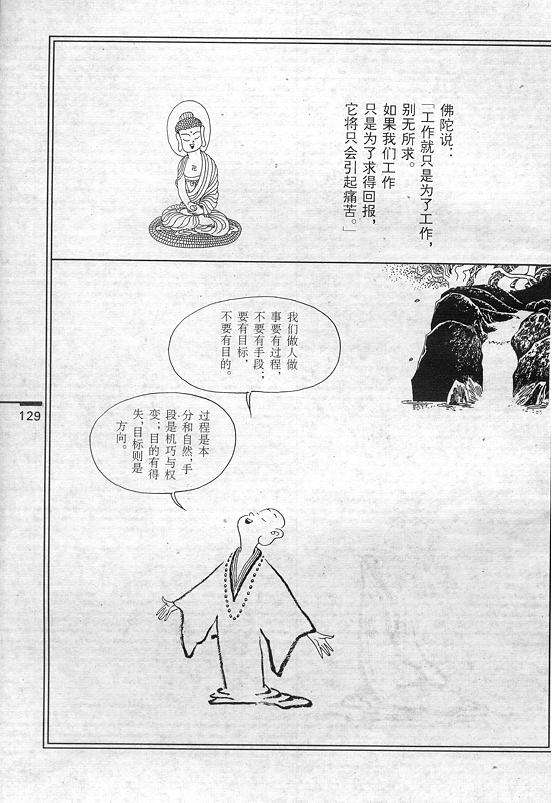 佛陀说：
「工作就只是为了工作，
别无所求。
如果我们工作
只是为了求得回报，
它将只会引起痛苦。」
我们做人做
事要有过程，
不要有手段；
要有目标，
不要有目的。
过程是本
分和自然，手
段是机巧与权
变；目的有得
失，目标则是
方向。
129